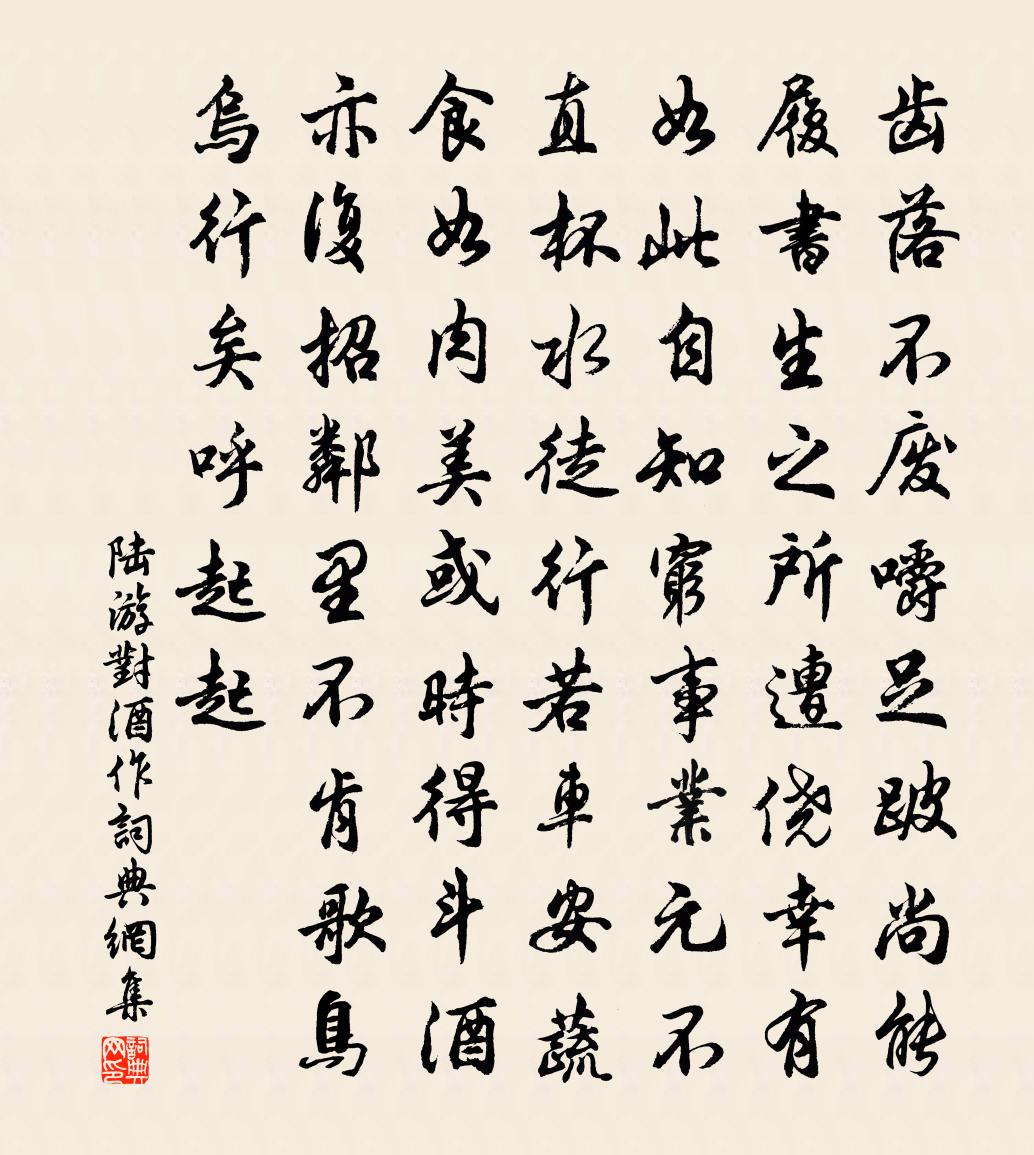 齿落不废嚼足跛尚能
履書生之所遭侥幸有
如此自知窮事業元不
直杯水徒行若車安蔬
食如肉美或時得斗酒
亦復招鄰里不肯歌烏
烏行矣呼起起
陆游對酒作詞典網集
詞典网印